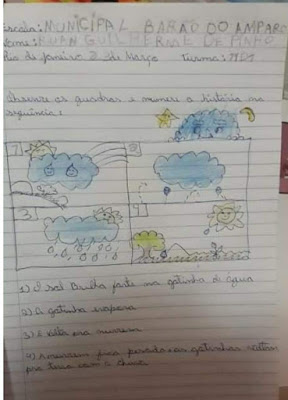 Escola: MUNICIPAL BARÃO DO AMPARO
Nome: GUILHERME DE
Rio de Janeiro 2 de Março Turma:
Observe os quadros e numere a história na
sequência:
3 4
1) O sol Brilha forte na gotinha de água
2) A gotinha evapora
3) E volta pra nuvem
4) A nuvem fica pesada e as gotinhas voltam
pra terra com a chuva